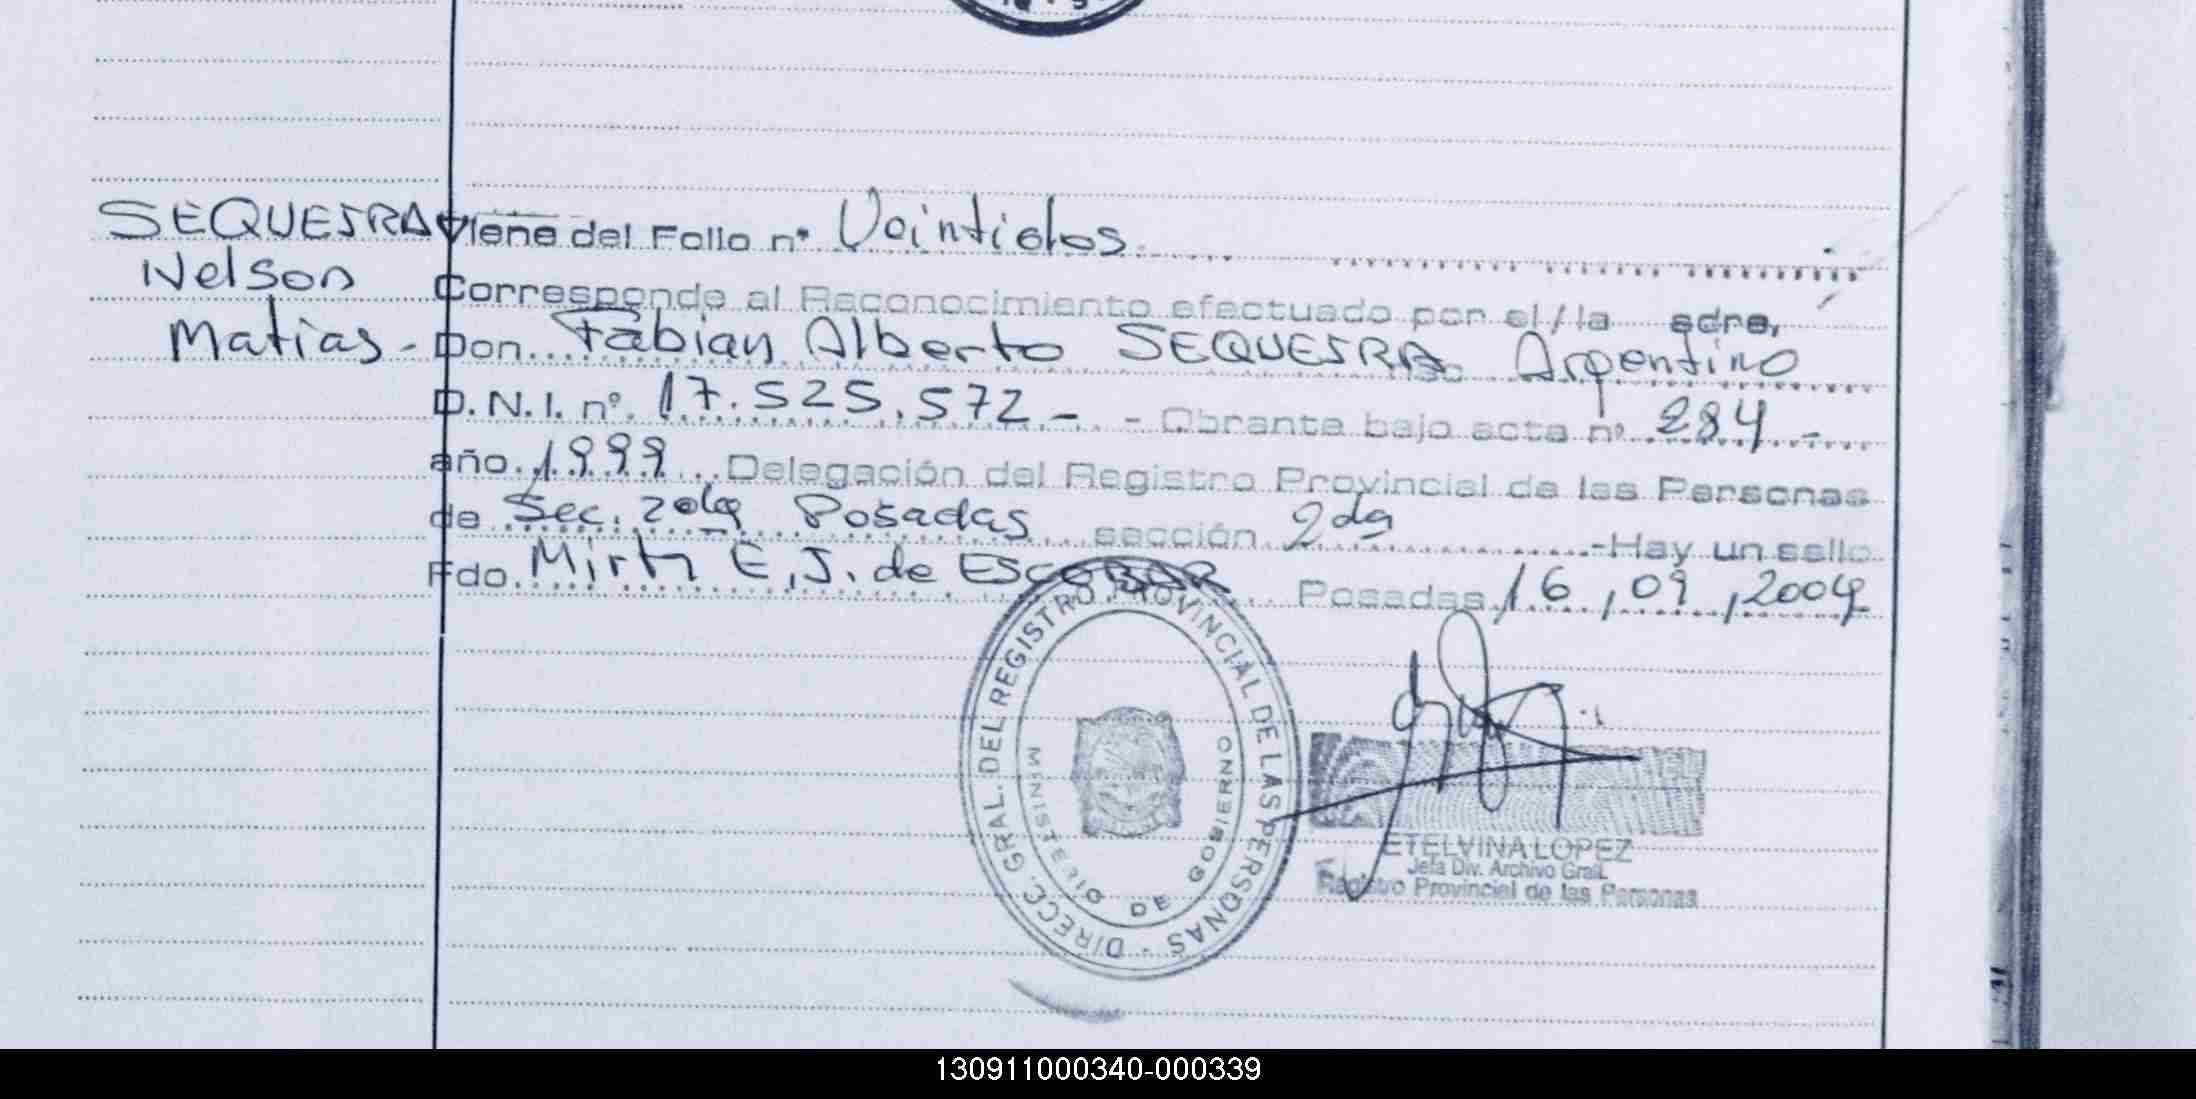 SEQUEIRA Viene del Folio nº Veintidos.
Nelson
Corresponde al Reconocimiento efectuado por el/la adre,
Matias- Don Fabian Alberto SEQUEIRA Argentino
D.N.I. nº 17.525.572 - - Obrante bajo acta nº 284 -
año 1999 Delegación del Registro Provincial de las Personas
de Sec. 2da Posadas sección 2da -Hay un sello
Fdo. Mirta E.J. de ESCOBAR Posadas 16,09,2004
DIRECC. GRAL. DEL REGISTRO PROVINCIAL DE LAS PERSONAS -
MINISTERIO DE GOBIERNO
ETELVINA LOPEZ
Jefa Div. Archivo Gral.
Registro Provincial de las Personas
130911000340-000339